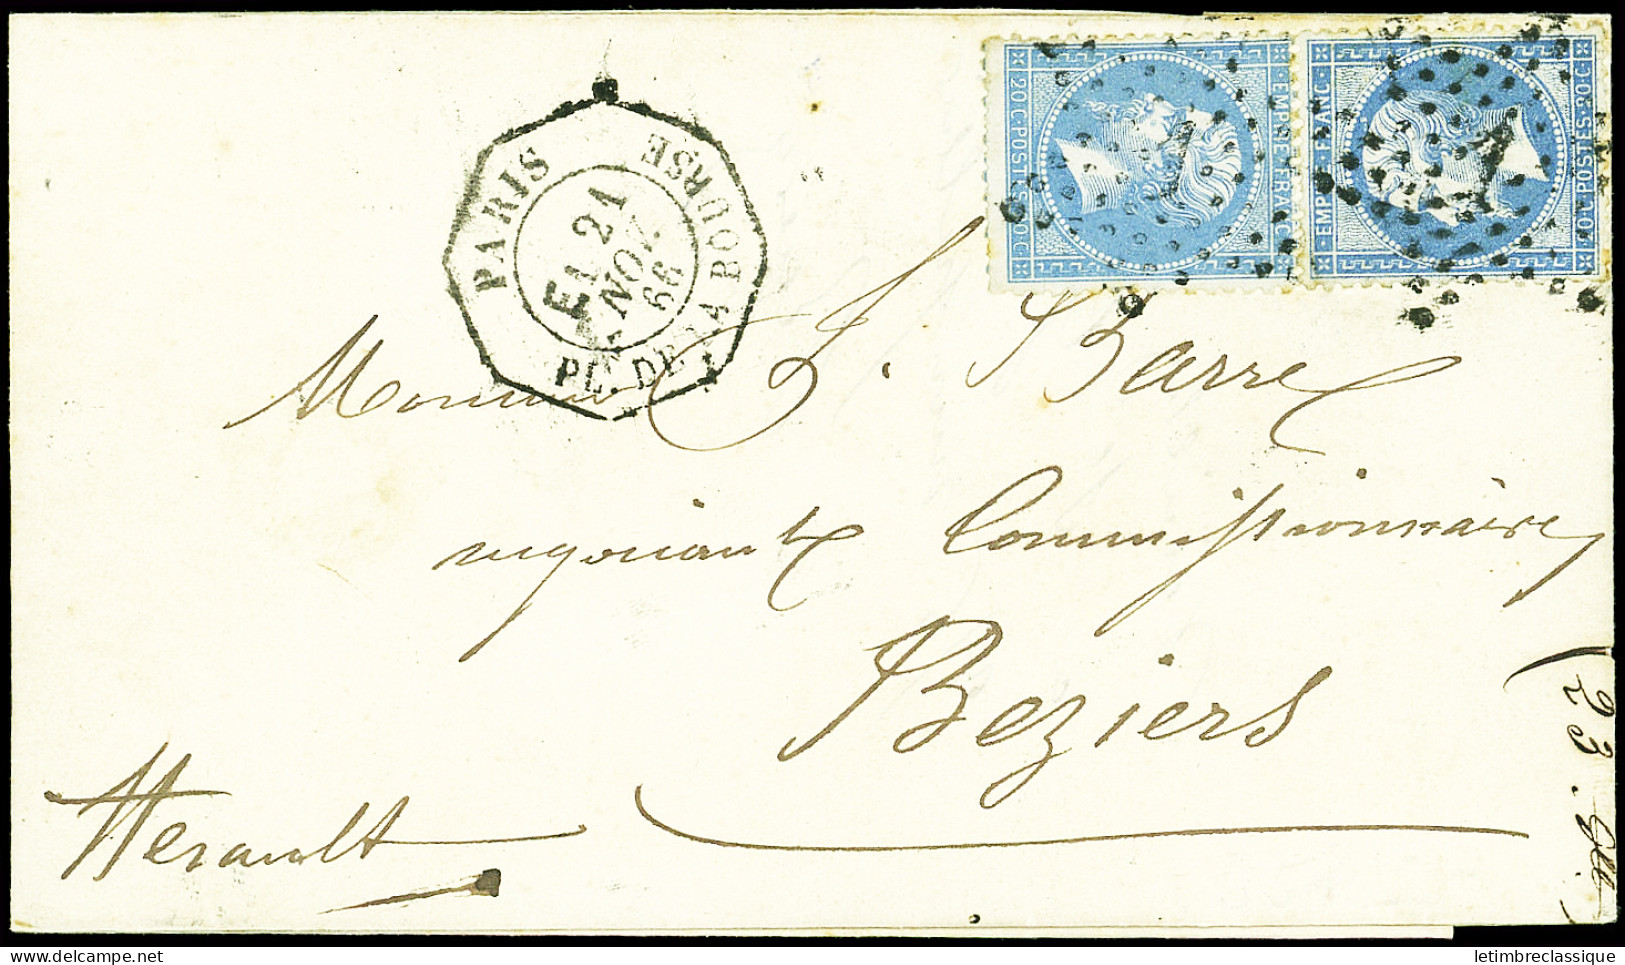 20 C. POSTES 20 C. EMPIRE FRANC
EMPIRE FRANC 20 C. POSTES 20 C.
PARIS PL. DE LA BOURSE
E1
21
NOV.
66
Monsieur J. Barre
négociant Commissionnaire
Beziers
Herault
23.
letimbreclassique